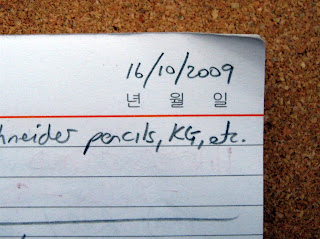 16/10/2009
년 월 일
hneider pencils, KG, etc.